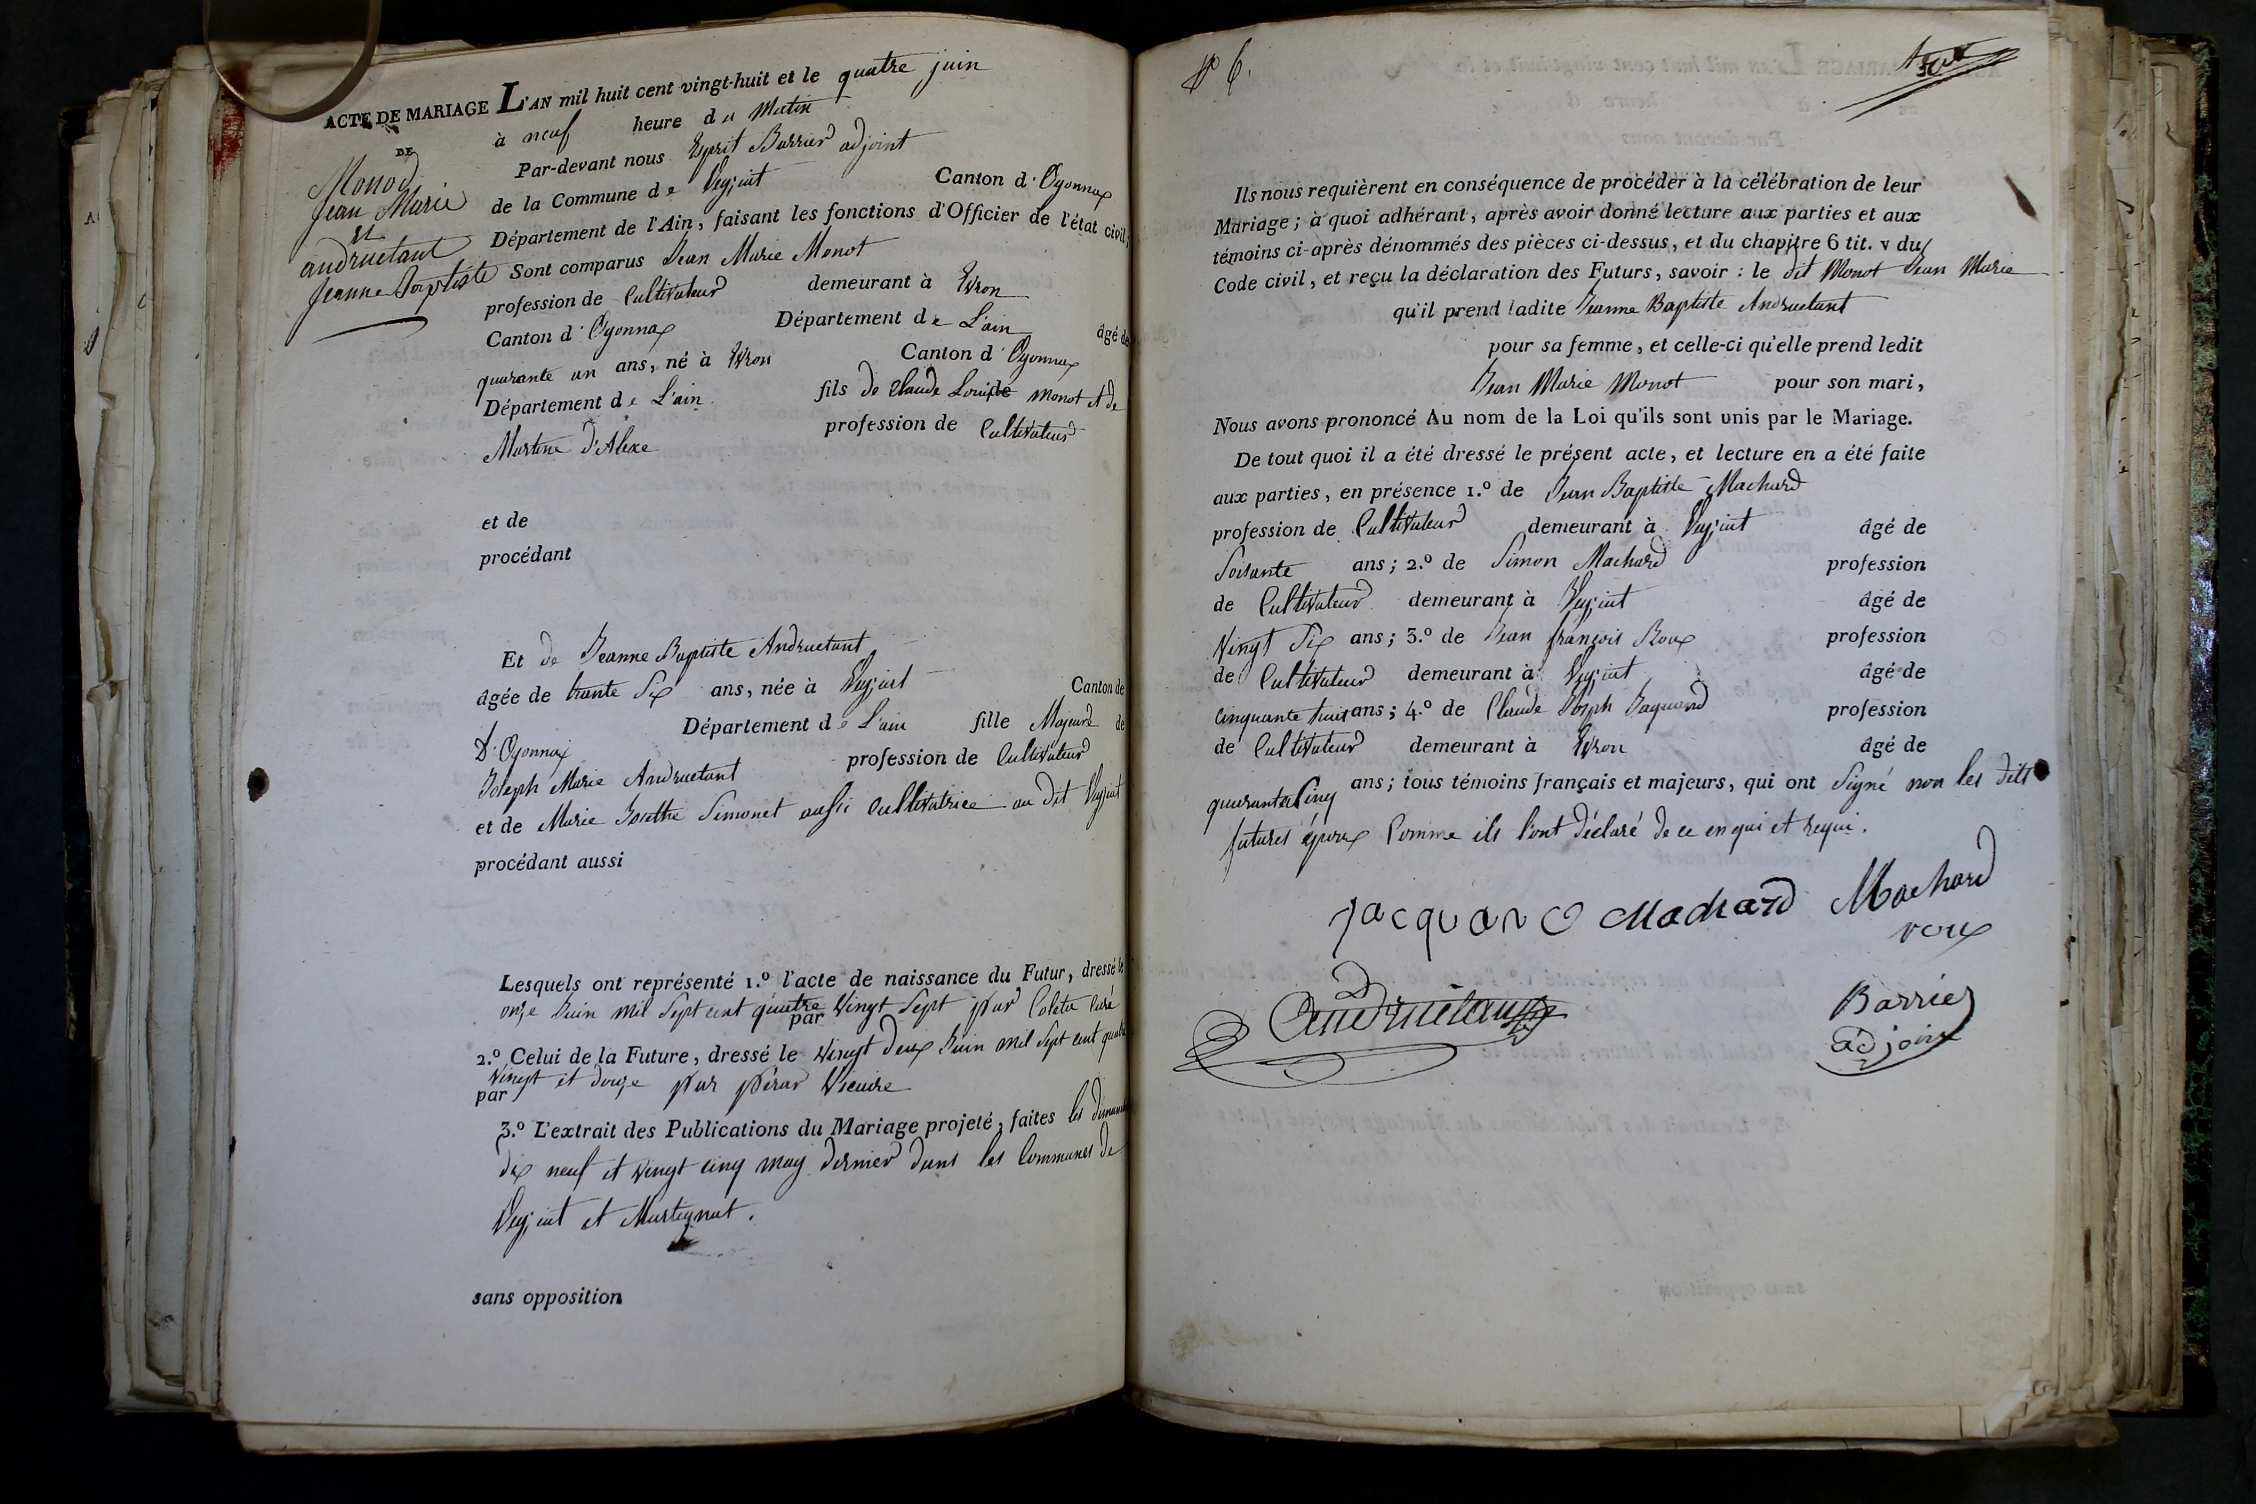 ACTE DE MARIAGE L'AN mil huit cent vingt-huit et le quatre juin
DE
Monod
Jean Marie
et
andruetant
Jeanne Baptiste
à neuf heure du Matin
Par-devant nous Esprit Barrier adjoint
de la Commune de Veyziat Canton d'Oyonnax
Département de l'Ain, faisant les fonctions d'Officier de l'état civil;
Sont comparus Jean Marie Monot
profession de Cultivateur demeurant à Evron
Canton d'Oyonnax Département de L'ain âgé de
quarante un ans, né à Evron Canton d'Oyonnax
Département de L'ain fils de Claude Louis de monot et de
Martine d'Alexe profession de Cultivateur
et de
procédant
Et de Jeanne Baptiste Andruetant
âgée de trante Six ans, née à Veyziat Canton de
D'Oyonnax Département de L'ain fille Majeure de
Joseph Marie Andruetant profession de Cultivateur
et de Marie Josethe Simonet aussi Cultivatrice au dit Veyziat
procédant aussi
Lesquels ont représenté 1.º l'acte de naissance du Futur, dressé le
onze Juin mil Sept cent quatre Vingt Sept par Coleta Curé
par
2.º Celui de la Future, dressé le Vingt deux Juin mil Sept cent quatre
Vingt et douze par pérar Vicaire
par
3.º L'extrait des Publications du Mariage projeté, faites les dimanche
dix neuf et Vingt cinq may dernier dans les Communes de
Veyziat et Martignat.
sans opposition
Nº 6.
Ils nous requièrent en conséquence de procéder à la célébration de leur
Mariage; à quoi adhérant, après avoir donné lecture aux parties et aux
témoins ci-après dénommés des pièces ci-dessus, et du chapitre 6 tit. v du
Code civil, et reçu la déclaration des Futurs, savoir : le dit Monot Jean Marie
qu'il prend ladite Jeanne Baptiste Andruetant
pour sa femme, et celle-ci qu'elle prend ledit
Jean Marie Monot pour son mari,
Nous avons prononcé Au nom de la Loi qu'ils sont unis par le Mariage.
De tout quoi il a été dressé le présent acte, et lecture en a été faite
aux parties, en présence 1.º de Jean Baptiste Machard
profession de Cultivateur demeurant à Veyziat âgé de
Soisante ans; 2.º de Simon Machard profession
de Cultivateur demeurant à Veyziat âgé de
Vingt Six ans; 3.º de Jean françois Roux profession
de Cultivateur demeurant à Veyziat âgé de
Cinquante huit ans; 4.º de Claude Joseph Jaquand profession
de Cultivateur demeurant à Evron âgé de
quarante Cinq ans; tous témoins français et majeurs, qui ont Signé non les dits
futures époux Comme ils l'ont déclaré de ce enqui et requi.
Jacquand Machard Machard
roux
Andruétan
Barrier
adjoin